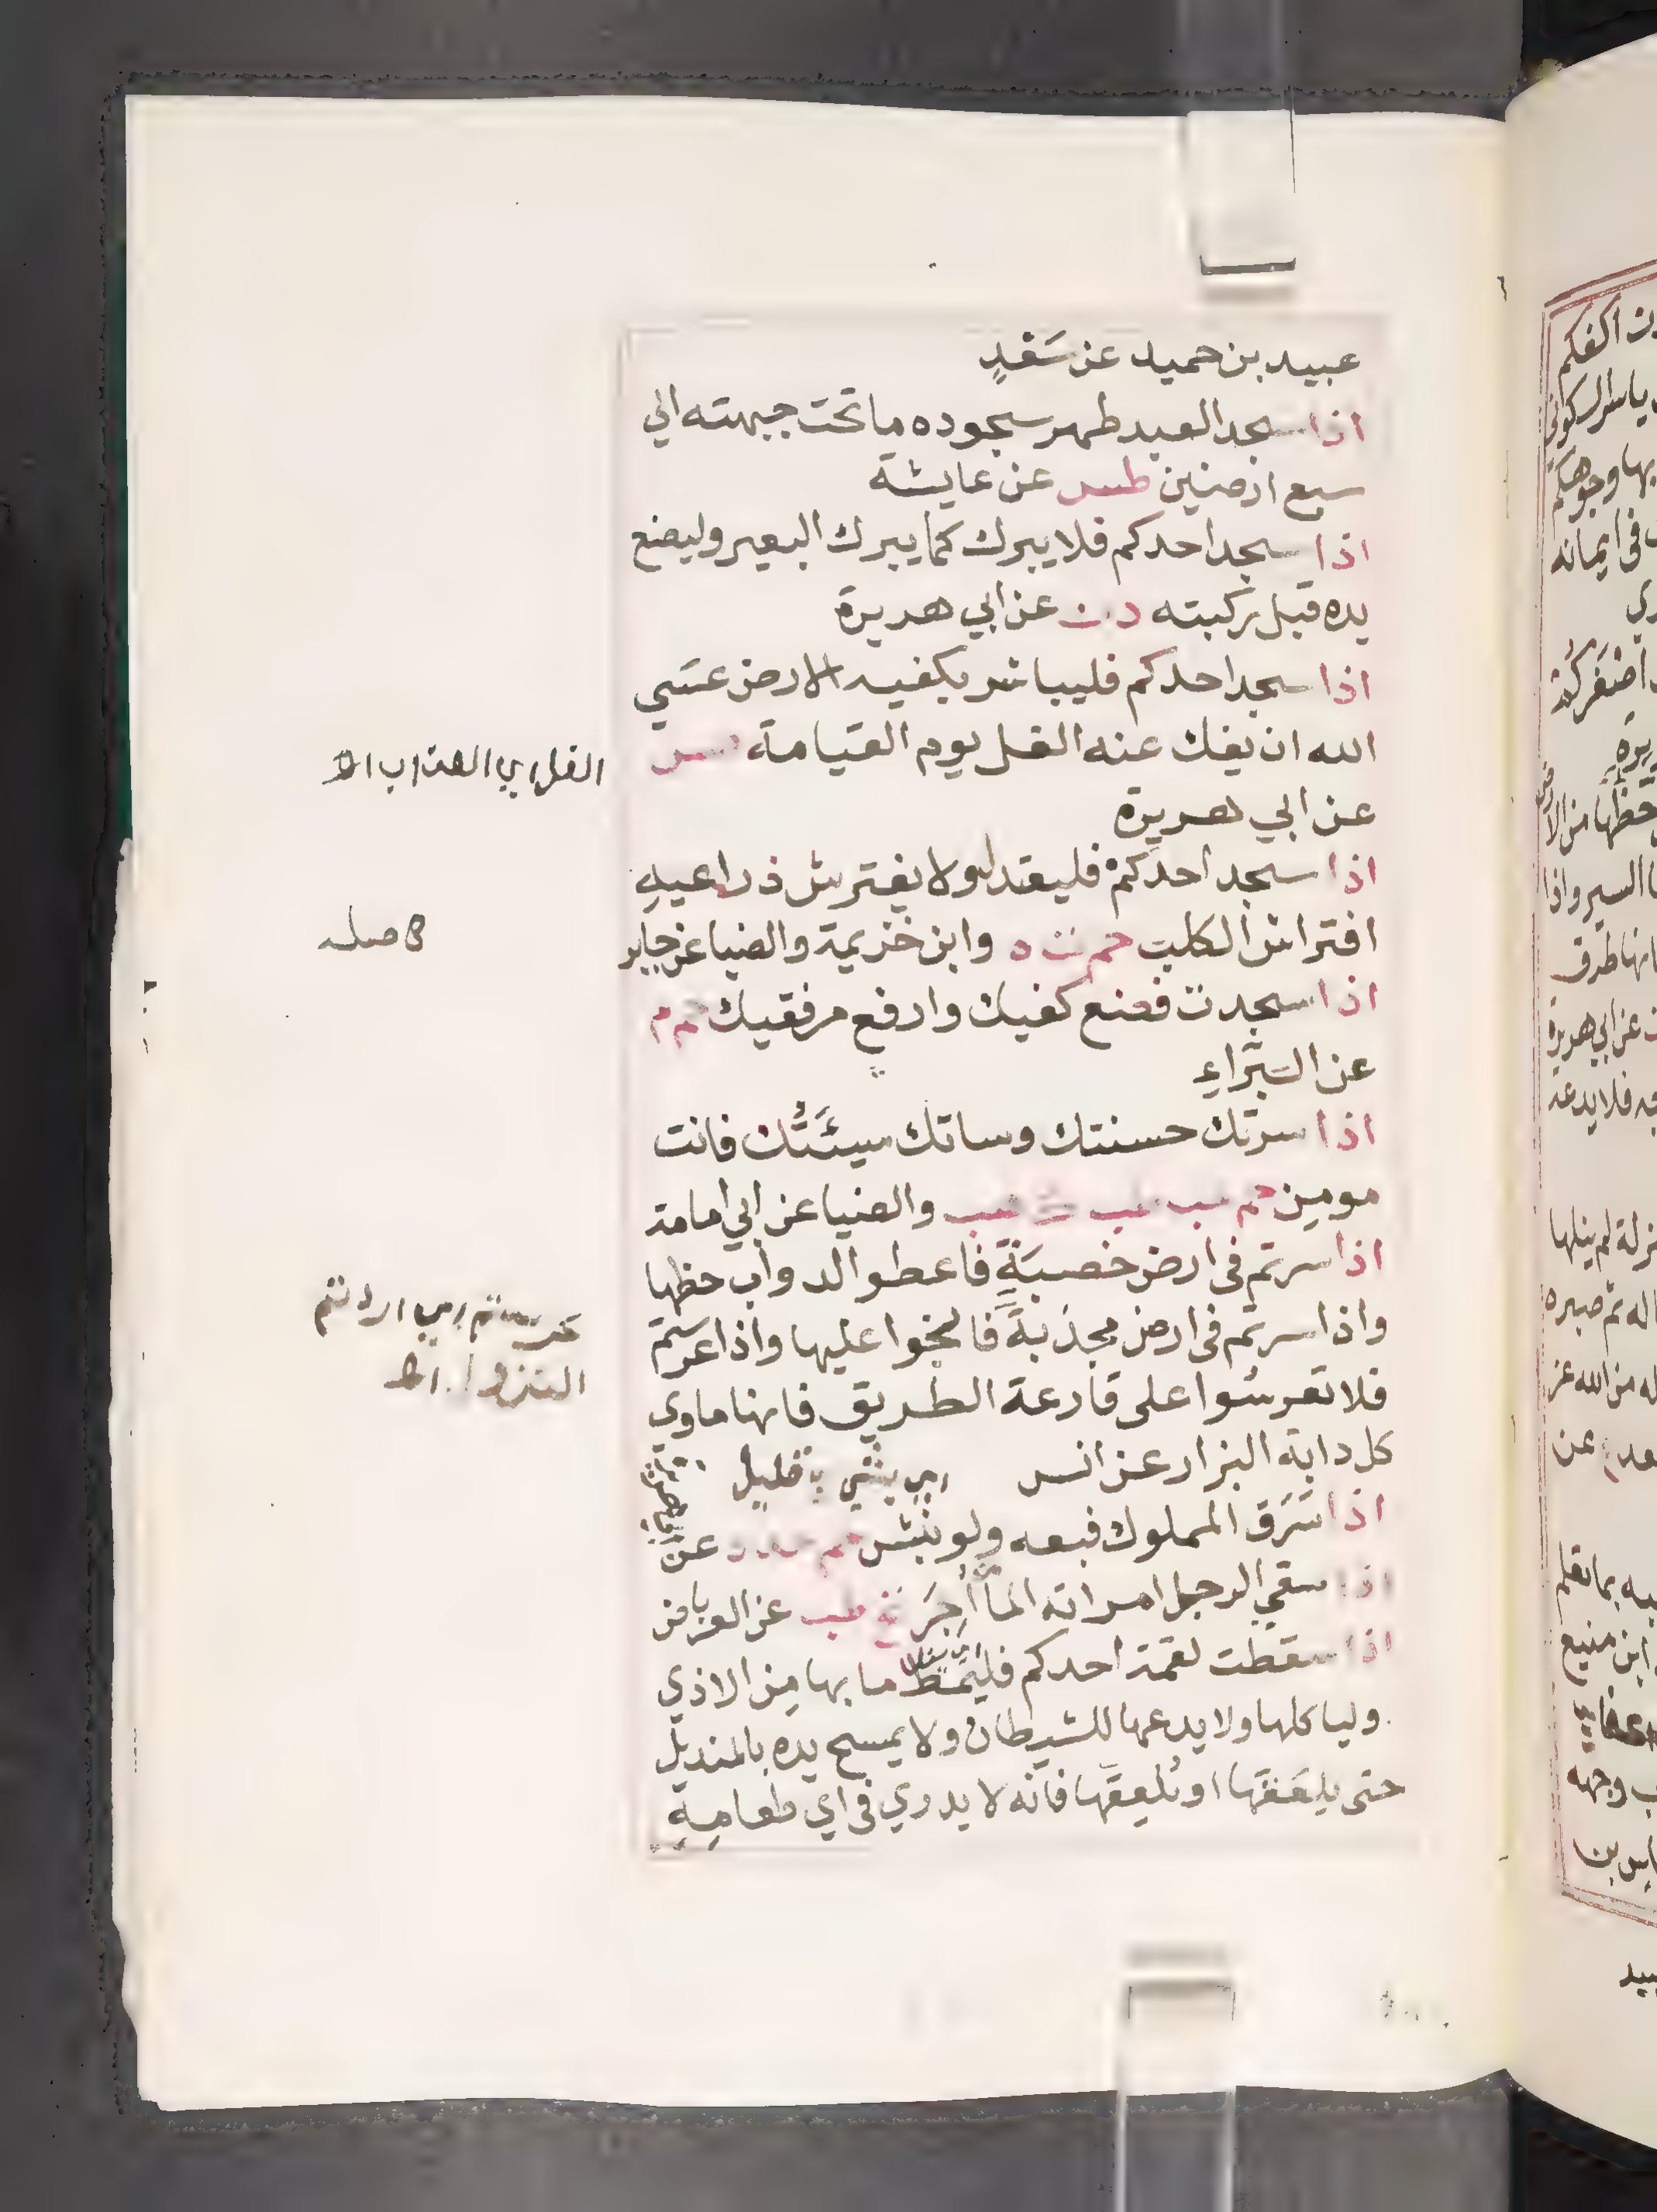 عبيد بن حميد عن سَعْدٍ
اذا سجد العبد طهر سجوده ما تحت جبهته الي
سبع ارضين طس عن عايشة
اذا سجد احدكم فلا يبرك كما يبرك البعير وليضع
يده قبل ركبته د ن عن ابي هريرة
اذا سجد احدكم فليباشر بكفيه الارض عسَي
الله ان يفك عنه الغل يوم القيامة طس
الغل اي العذاب اﻫ
عن ابي هريرة
اذا سجد احدكم فليعتدل ولا يفترش ذراعيهِ
افتراش الكلب حم ت ه وابن خزيمة والضيا عن جابر
اذا سجدت فضع كفيك وارفع مرفقيك حم م
عن البَراءِ
اذا سرتك حسنتك وساتك سيئَتُك فانت
مومن حم حب طب ك هب والضيا عن ابي امامة
اذا سرتم في ارض خصبَةٍ فاعطوا الدواب حظها
واذا سرتم في ارض مجدبَةٍ فانجوا عليها واذا عرستم
عرستم اي اردتم
النزول اﻫ
فلا تعرسُوا على قارعة الطريق فانها ماوي
كل دابة البزار عن انس
اي بشي قليل
اذا سَرَق المملوك فبعه ولو بنش حم خد د عن
اذا سقي الرجل امراته الماَ أُجرَ تخ طب عن العرباض
اذا سقطت لقمة احدكم فليُمط ما بها مِن الاذي
ولياكلها ولا يدعها للشيطان ولا يمسح يده بالمنديل
حتى يلعَقَها او يُلعِقَها فانه لا يدري في اي طعامِهِ